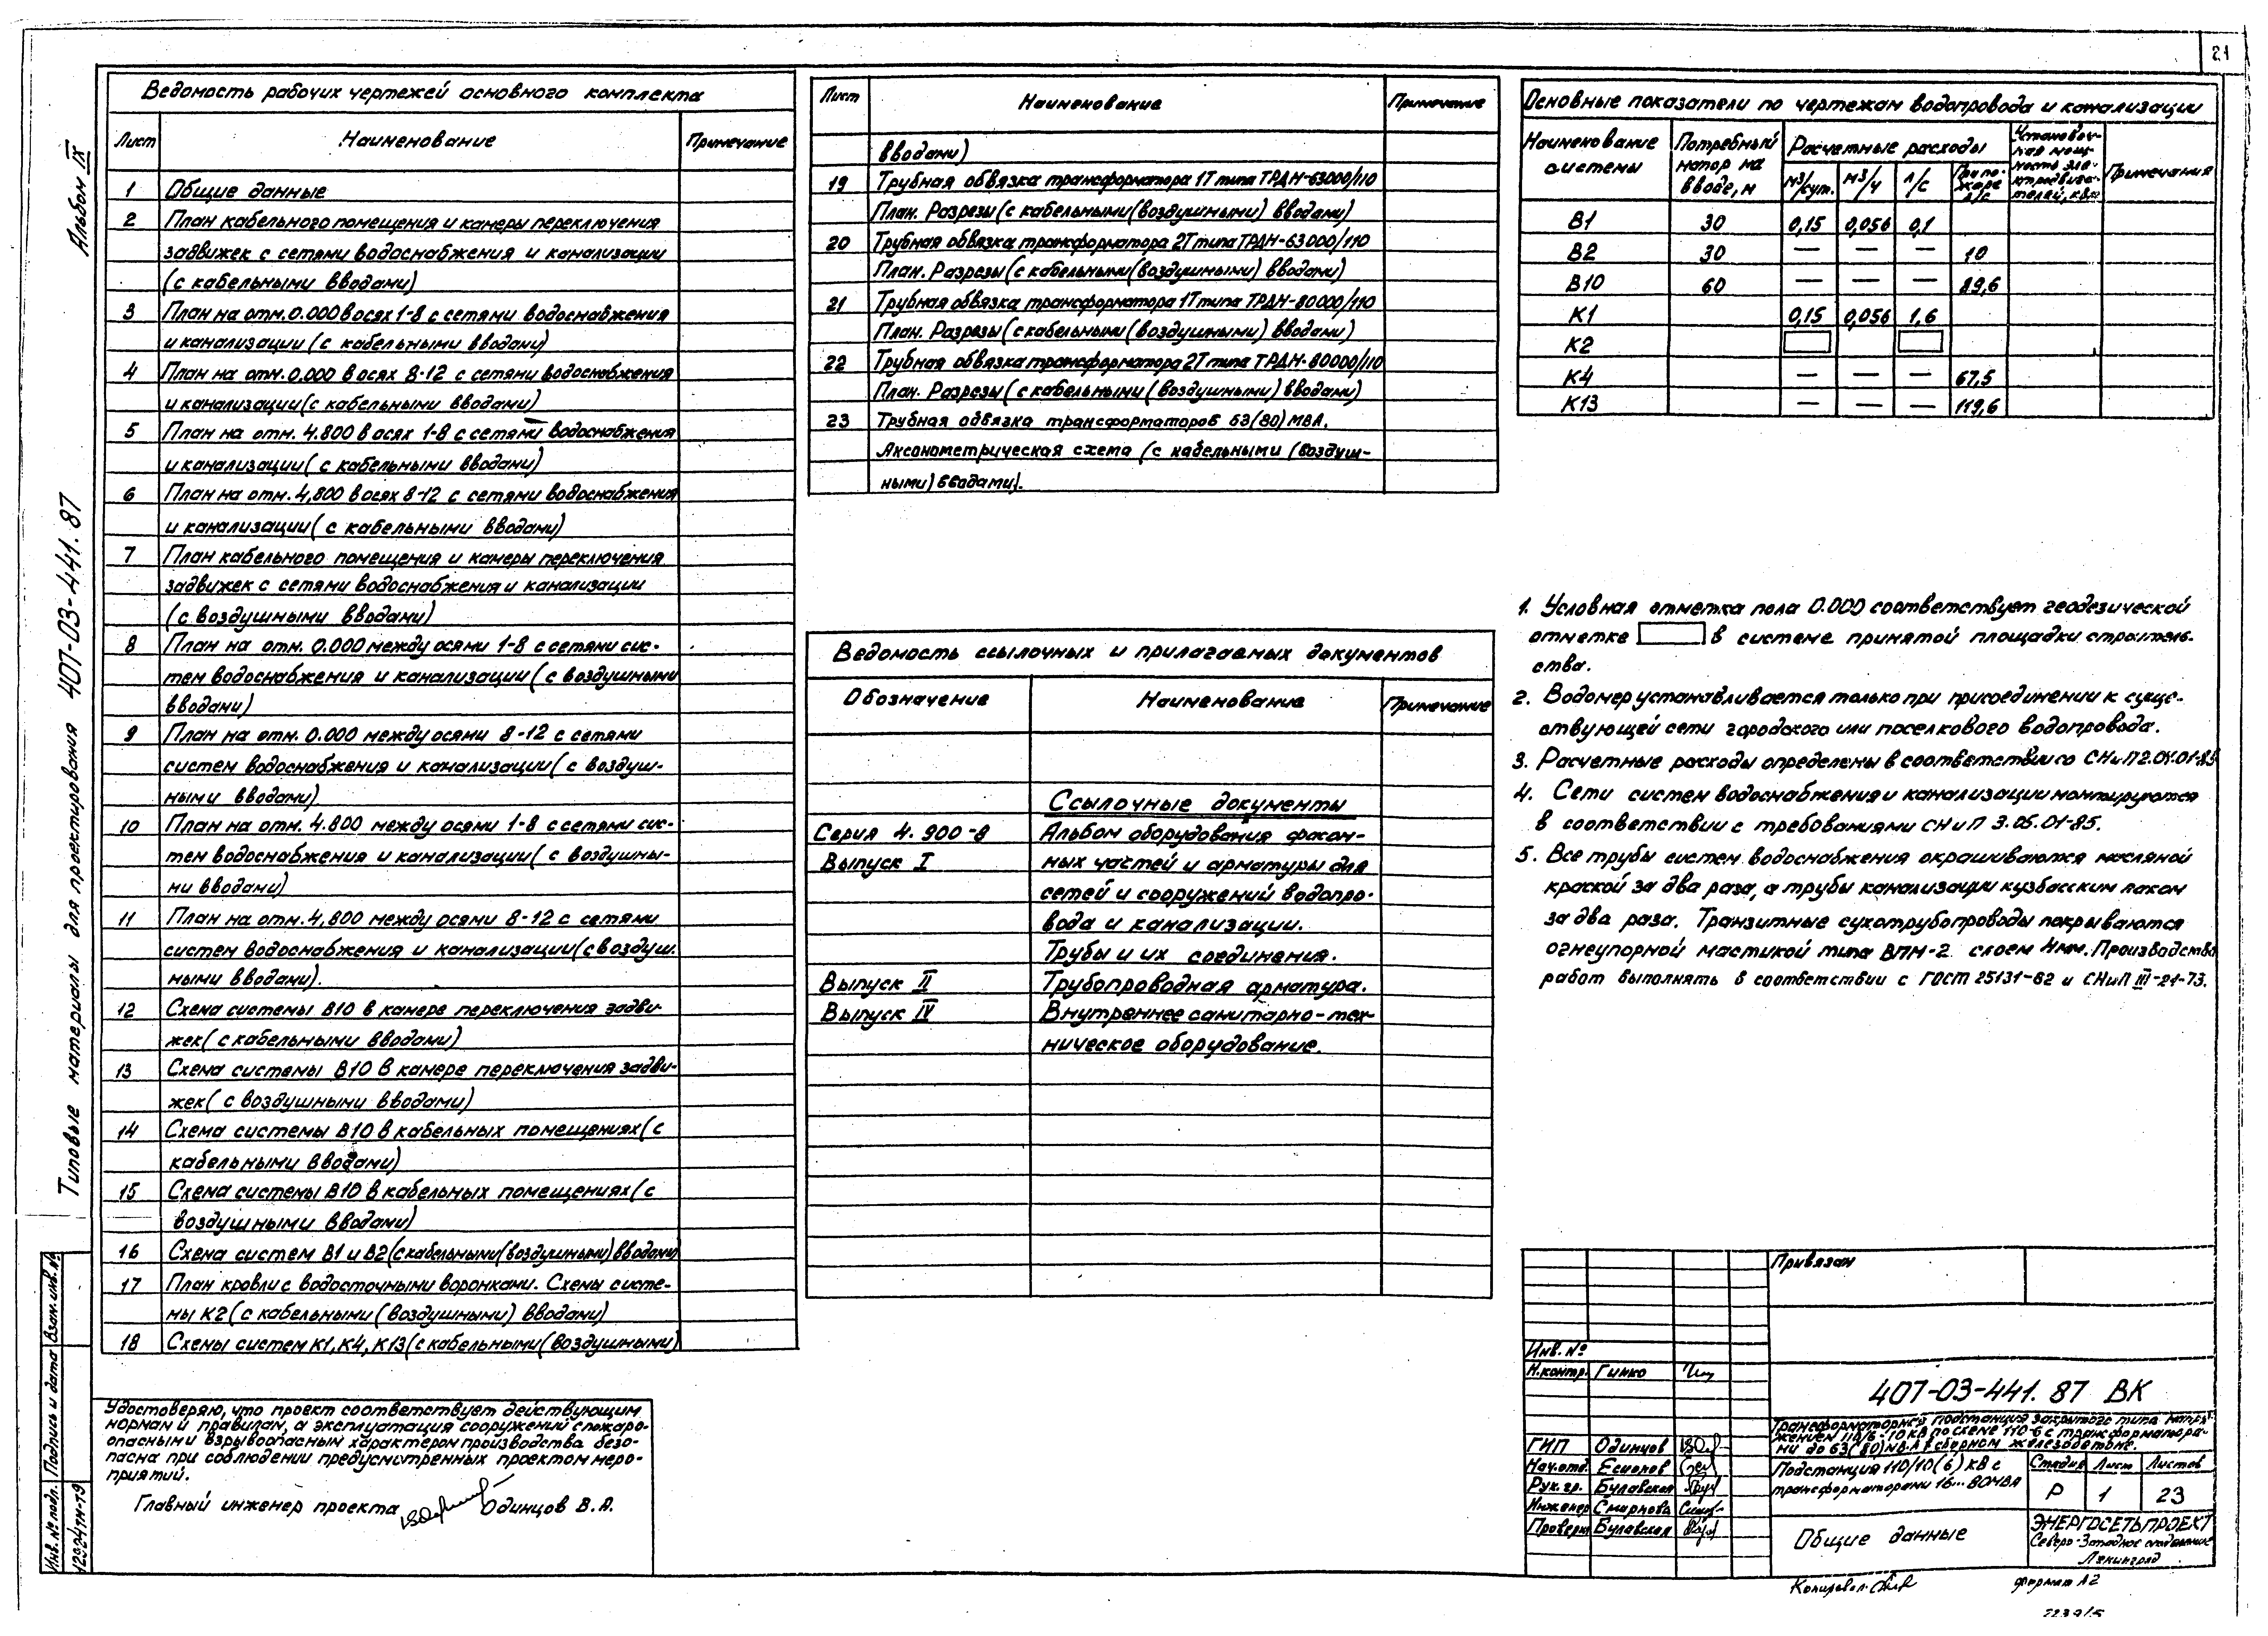 21
Альбом IX
Типовые материалы для проектирования 407-03-441.87
Ведомость рабочих чертежей основного комплекта
Лист Наименование Примечание
1 Общие данные
2 План кабельного помещения и камеры переключения
задвижек с сетями водоснабжения и канализации
(с кабельными вводами)
3 План на отм. 0.000 в осях 1-8 с сетями водоснабжения
и канализации (с кабельными вводами)
4 План на отм. 0.000 в осях 8-12 с сетями водоснабжения
и канализации (с кабельными вводами)
5 План на отм. 4.800 в осях 1-8 с сетями водоснабжения
и канализации (с кабельными вводами)
6 План на отм. 4,800 в осях 8-12 с сетями водоснабжения
и канализации (с кабельными вводами)
7 План кабельного помещения и камеры переключения
задвижек с сетями водоснабжения и канализации
(с воздушными вводами)
8 План на отм. 0.000 между осями 1-8 с сетями сис-
тем водоснабжения и канализации (с воздушными
вводами)
9 План на отм. 0.000 между осями 8-12 с сетями
систем водоснабжения и канализации (с воздуш-
ными вводами)
10 План на отм. 4.800 между осями 1-8 с сетями сис-
тем водоснабжения и канализации (с воздушны-
ми вводами)
11 План на отм. 4,800 между осями 8-12 с сетями
систем водоснабжения и канализации (с воздуш.
ными вводами).
12 Схема системы В10 в камере переключения задви-
жек (с кабельными вводами)
13 Схема системы В10 в камере переключения задви-
жек (с воздушными вводами)
14 Схема системы В10 в кабельных помещениях (с
кабельными вводами)
15 Схема системы В10 в кабельных помещениях (с
воздушными вводами)
16 Схема систем В1 и В2 (с кабельными (воздушными) вводами)
17 План кровли с водосточными воронками. Схемы систе-
мы К2 (с кабельными (воздушными) вводами)
18 Схемы систем К1, К4, К13 (с кабельными (воздушными)
Лист Наименование Примечание
вводами)
19 Трубная обвязка трансформатора 1Т типа ТРДН-63000/110
План. Разрезы (с кабельными (воздушными) вводами)
20 Трубная обвязка трансформатора 2Т типа ТРДН-63000/110
План. Разрезы (с кабельными (воздушными) вводами)
21 Трубная обвязка трансформатора 1Т типа ТРДН-80000/110
План. Разрезы (с кабельными (воздушными) вводами)
22 Трубная обвязка трансформатора 2Т типа ТРДН-80000/110
План. Разрезы (с кабельными (воздушными) вводами)
23 Трубная обвязка трансформаторов 63(80) МВА.
Аксонометрическая схема (с кабельными (воздуш-
ными) вводами).
Ведомость ссылочных и прилагаемых документов
Обозначение Наименование Примечание
Ссылочные документы
Серия 4.900-8 Альбом оборудования фасон-
Выпуск I ных частей и арматуры для
сетей и сооружений водопро-
вода и канализации.
Трубы и их соединения.
Выпуск II Трубопроводная арматура.
Выпуск IV Внутреннее санитарно-тех-
ническое оборудование.
Основные показатели по чертежам водопровода и канализации
Наименование системы Потребный напор на вводе, м Расчетные расходы Установоч-ная мощ-ность эле-ктродвига-телей, квт Примечания
м3/сут. м3/ч л/с При по-жаре л/с
В1 30 0,15 0,056 0,1
В2 30 — — — 10
В10 60 — — — 89,6
К1 0,15 0,056 1,6
К2
К4 — — — 67,5
К13 — — — 119,6
1. Условная отметка пола 0.000 соответствует геодезической
отметке в системе принятой площадки строитель-
ства.
2. Водомер устанавливается только при присоединении к суще-
ствующей сети городского или поселкового водопровода.
3. Расчетные расходы определены в соответствии со СНиП 2.04.01-85
4. Сети систем водоснабжения и канализации монтируются
в соответствии с требованиями СНиП 3.05.01-85.
5. Все трубы систем водоснабжения окрашиваются масляной
краской за два раза, а трубы канализации кузбасским лаком
за два раза. Транзитные сухотрубопроводы покрываются
огнеупорной мастикой типа ВПМ-2 слоем 4мм. Производство
работ выполнять в соответствии с ГОСТ 25131-82 и СНиП III-21-73.
Удостоверяю, что проект соответствует действующим
нормам и правилам, а эксплуатация сооружений с пожаро-
опасным и взрывоопасным характером производства безо-
пасна при соблюдении предусмотренных проектом меро-
приятий.
Главный инженер проекта Одинцов В.А.
Инв. № подл. Подпись и дата Взам. инв. №
12924тм-т9
Привязан
Инв. №
Н.контр. Гинко
ГИП Одинцов
Нач.отд.
Рук. гр. Булавская
Инженер Смирнова
Проверил Булавская
407-03-441.87 ВК
Трансформаторная подстанция закрытого типа напря-
жением 110/6-10 кВ по схеме 110-6 с трансформатора-
ми до 63(80) МВ.А в сборном железобетоне.
Подстанция 110/10(6) кВ с
трансформаторами 16...80МВА
Стадия Лист Листов
Р 1 23
Общие данные
ЭНЕРГОСЕТЬПРОЕКТ
Северо-Западное отделение
Ленинград
Копировал:
формат А2